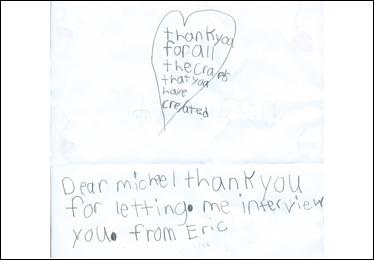 thankyou
for all
the crafts
that you
have
created
Dear micheel thank you
for letting. me interview
you. from Eric